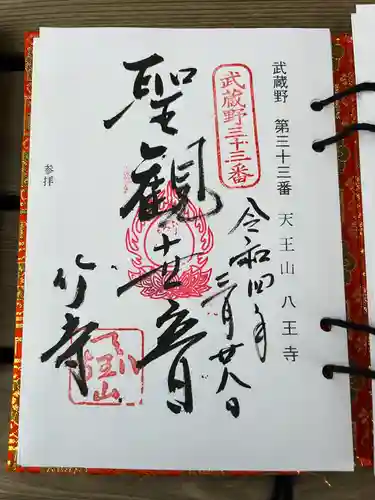 武蔵野 第三十三番 天王山 八王寺
武蔵野三十三番
令和四年三月廿八日
聖観世音
竹寺
参拝